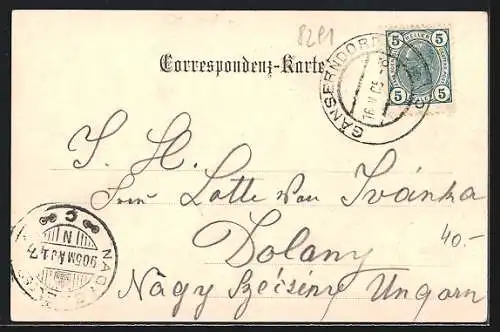 8291
Correspondenz-Karte
GÄNSERNDORF
5 5
5 5
S. H.
Frau Lotte von Ivánka
Dolany
40.-
Nagy Szécsény Ungarn
NAGY
905 MÁJ 17
N
C